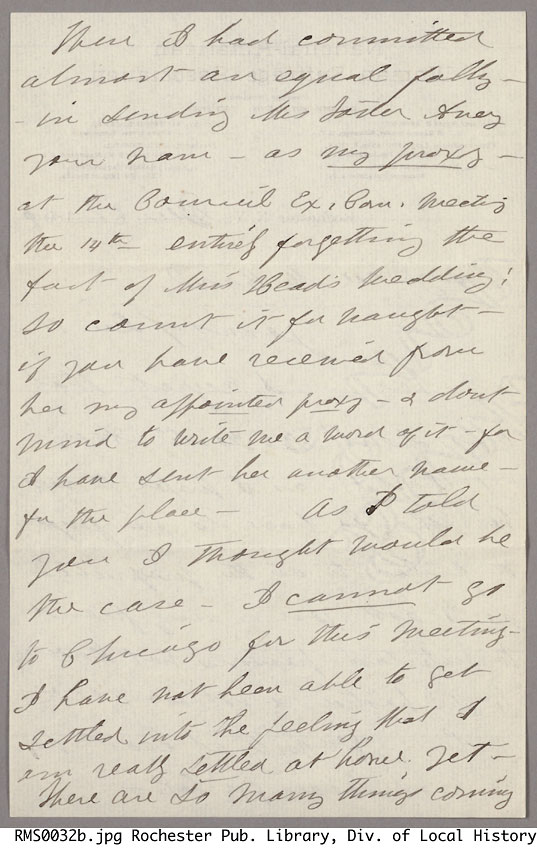 Then I had committed
almost an equal folly -
- in sending Mrs Foster Avery
your name - as my proxy -
at the Council Ex. Com. Meeting
the 14th entirely forgetting the
fact of Miss Head's wedding!
So count it for naught -
if you have received from
her my appointed proxy - & dont
mind to write me a word of it - for
I have sent her another name -
for the place - As I told
you I thought would be
the case - I cannot go
to Chicago for this Meeting -
I have not been able to get
settled into the feeling that I
am really settled at home yet -
There are so many things coming
RMS0032b.jpg Rochester Pub. Library, Div. of Local History